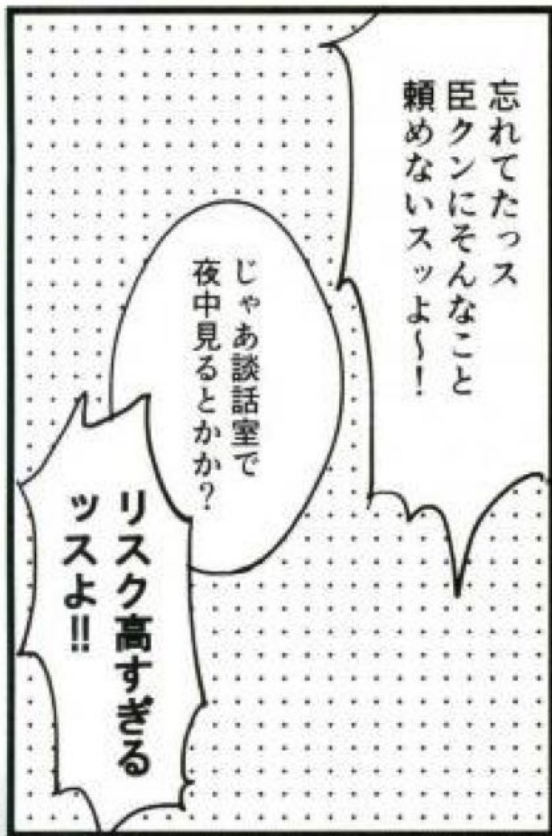 忘れてたっス
臣クンにそんなこと
頼めないスッよ~!
じゃあ談話室で
夜中見るとかか?
リスク高すぎる
ッスよ!!